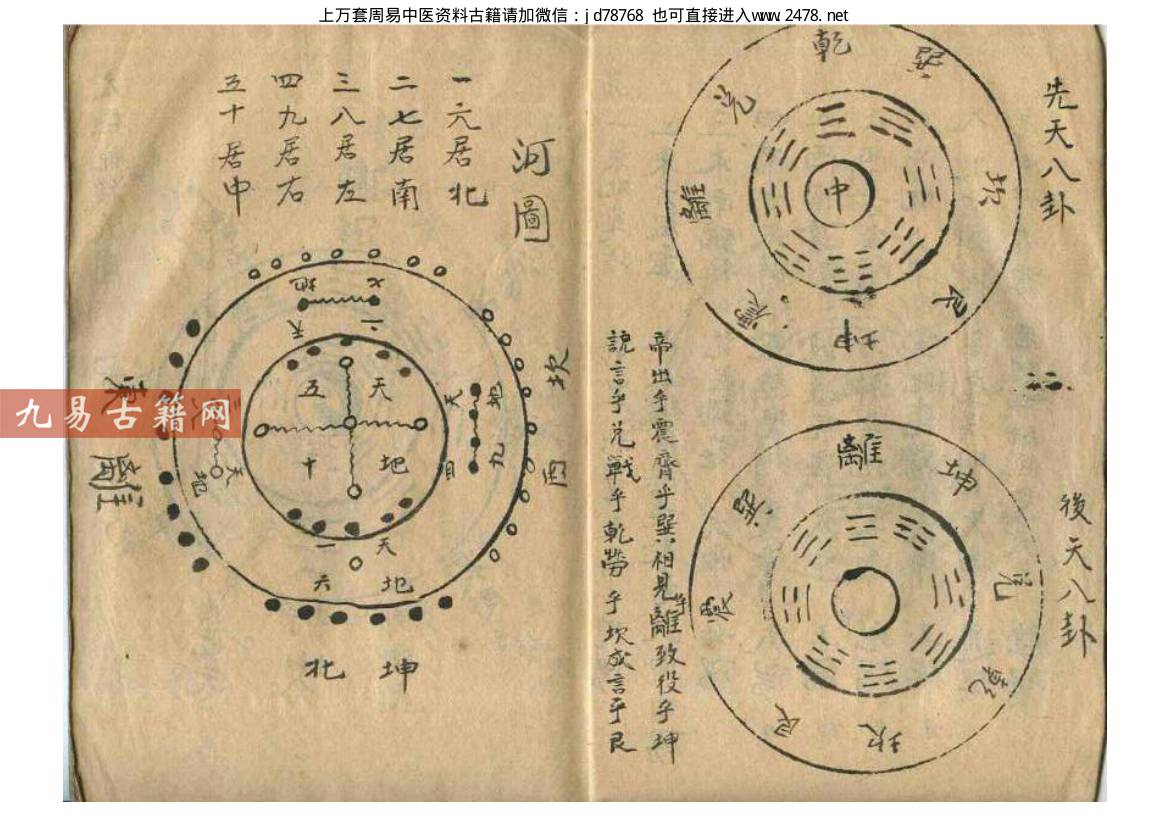 上万套周易中医资料古籍请加微信：jd78768 也可直接进入www.2478.net
先天八卦
乾
兌
離
坎
艮
坤
中
後天八卦
離
坤
兌
乾
坎
艮
震
巽
帝出乎震齊乎巽相見乎離致役乎坤
說言乎兌戰乎乾勞乎坎成言乎艮
河圖
一六居北
二七居南
三八居左
四九居右
五十居中
七
二
地
天
天
五
地
十
地
九
天
四
天
一
地
六
天
地
坎
西
東
離
坤
北
九易古籍网